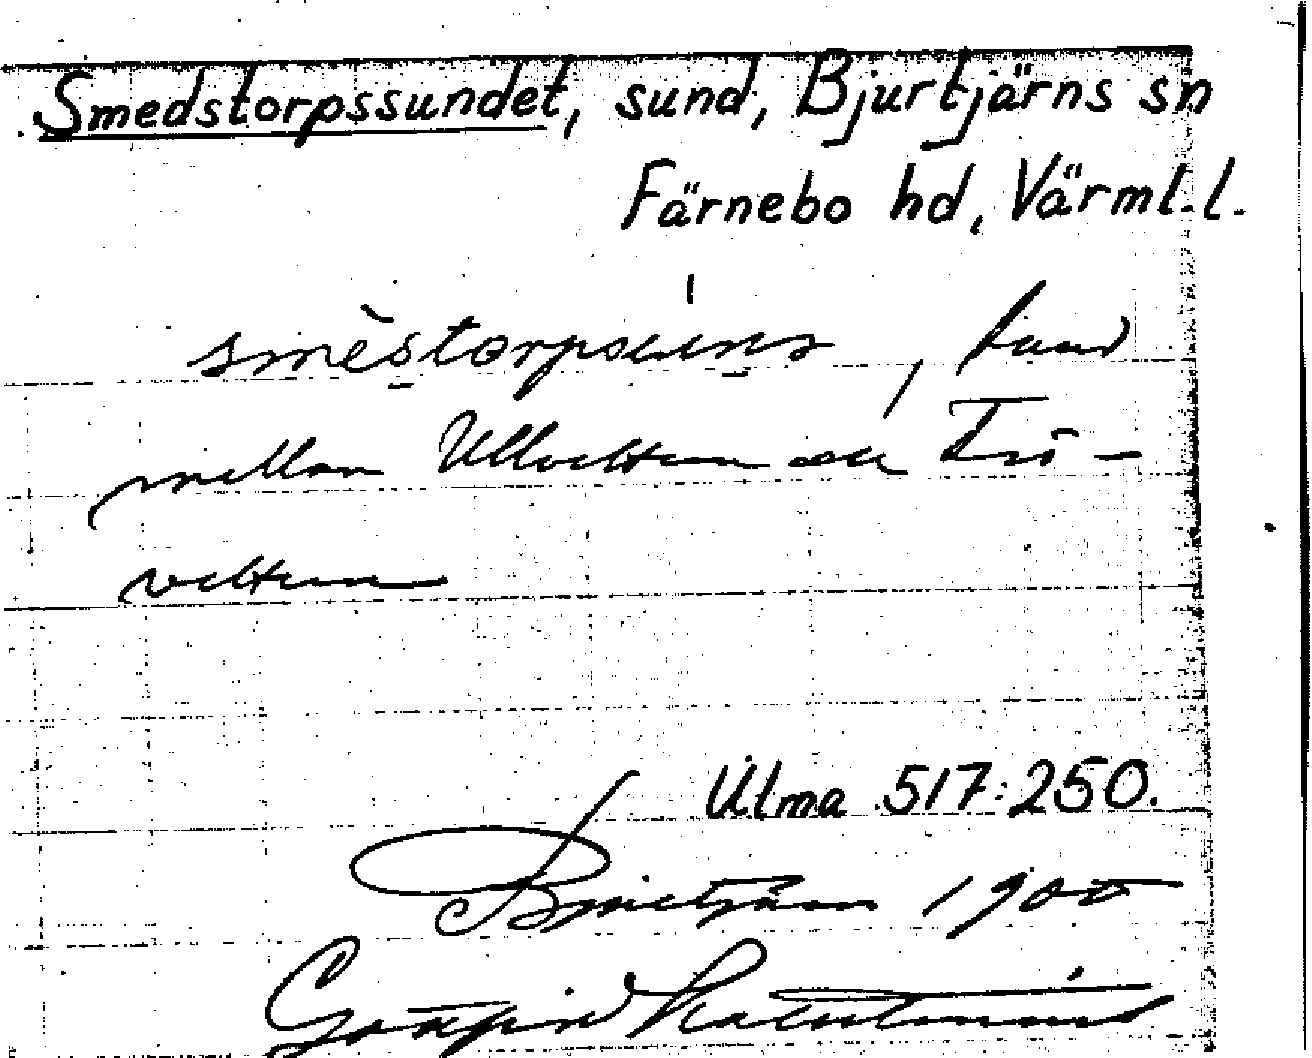 Smedstorpssundet, sund, Bjurtjärns sn
Färnebo hd, Värml. l.
smèstorpsuns, sund
mellan Ullvettern och Frö-
vettern
Ulma 517:250.
Bjurtjärn 1900
Gottfrid Kallstenius